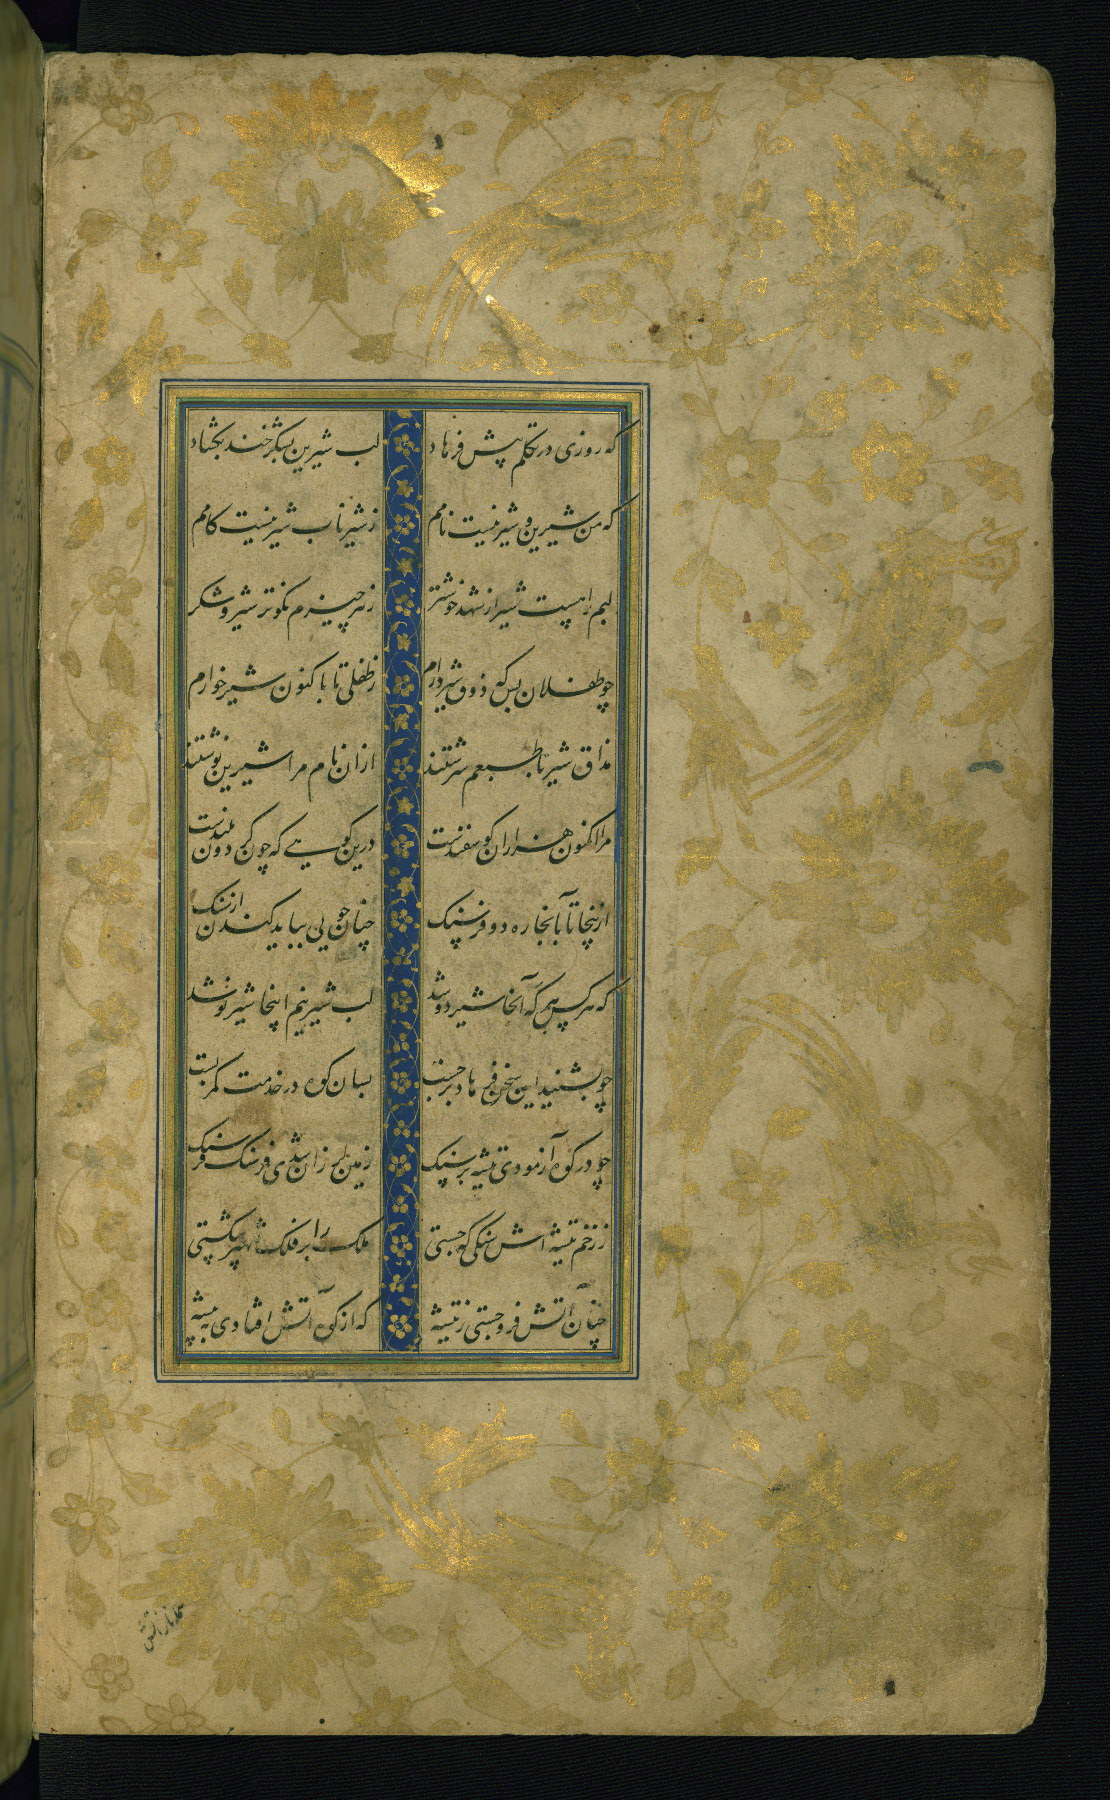 که روزی در تکلم پیش فرهاد لب شیرین بشکرخند بگشاد
که من شیرین و شیرینست نامم ز شیر ناب شیرینست کامم
لبم را هست شیر از شهد خوشتر ز هر چیزم نکوتر شیر و شکر
چو طفلان بس که ذوق شیر دارم ز طفلی تا باکنون شیرخوارم
مذاق شیر تا طبعم سرشتند ازان نام مرا شیرین نوشتند
مرا اکنون هزاران گوسفندست درین کوهی که چون گردون بلندست
ازینجا تا بآنجا ره دو فرسنگ چنان جویی بباید کندن از سنگ
که هرکس هر که آنجا شیر دوشد لب شیرینم اینجا شیر نوشد
چو بشنید این سخن فرهاد برجست بسان کوه در خدمت کمر بست
چو در کوه آزمودی تیشه بر سنگ زمین لرزان شدی فرسنگ فرسنگ
ز زخم تیشه اش سنگی که جستی ملک را بر فلک شهپر شکستی
چنان آتش فرو جستی ز تیشه که از کوه آتش افتادی به بیشه